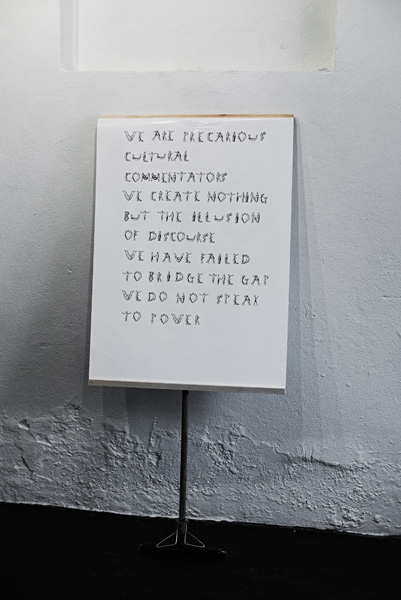 WE ARE PRECARIOUS
CULTURAL
COMMENTATORS
WE CREATE NOTHING
BUT THE ILLUSION
OF DISCOURSE
WE HAVE FAILED
TO BRIDGE THE GAP
WE DO NOT SPEAK
TO POWER